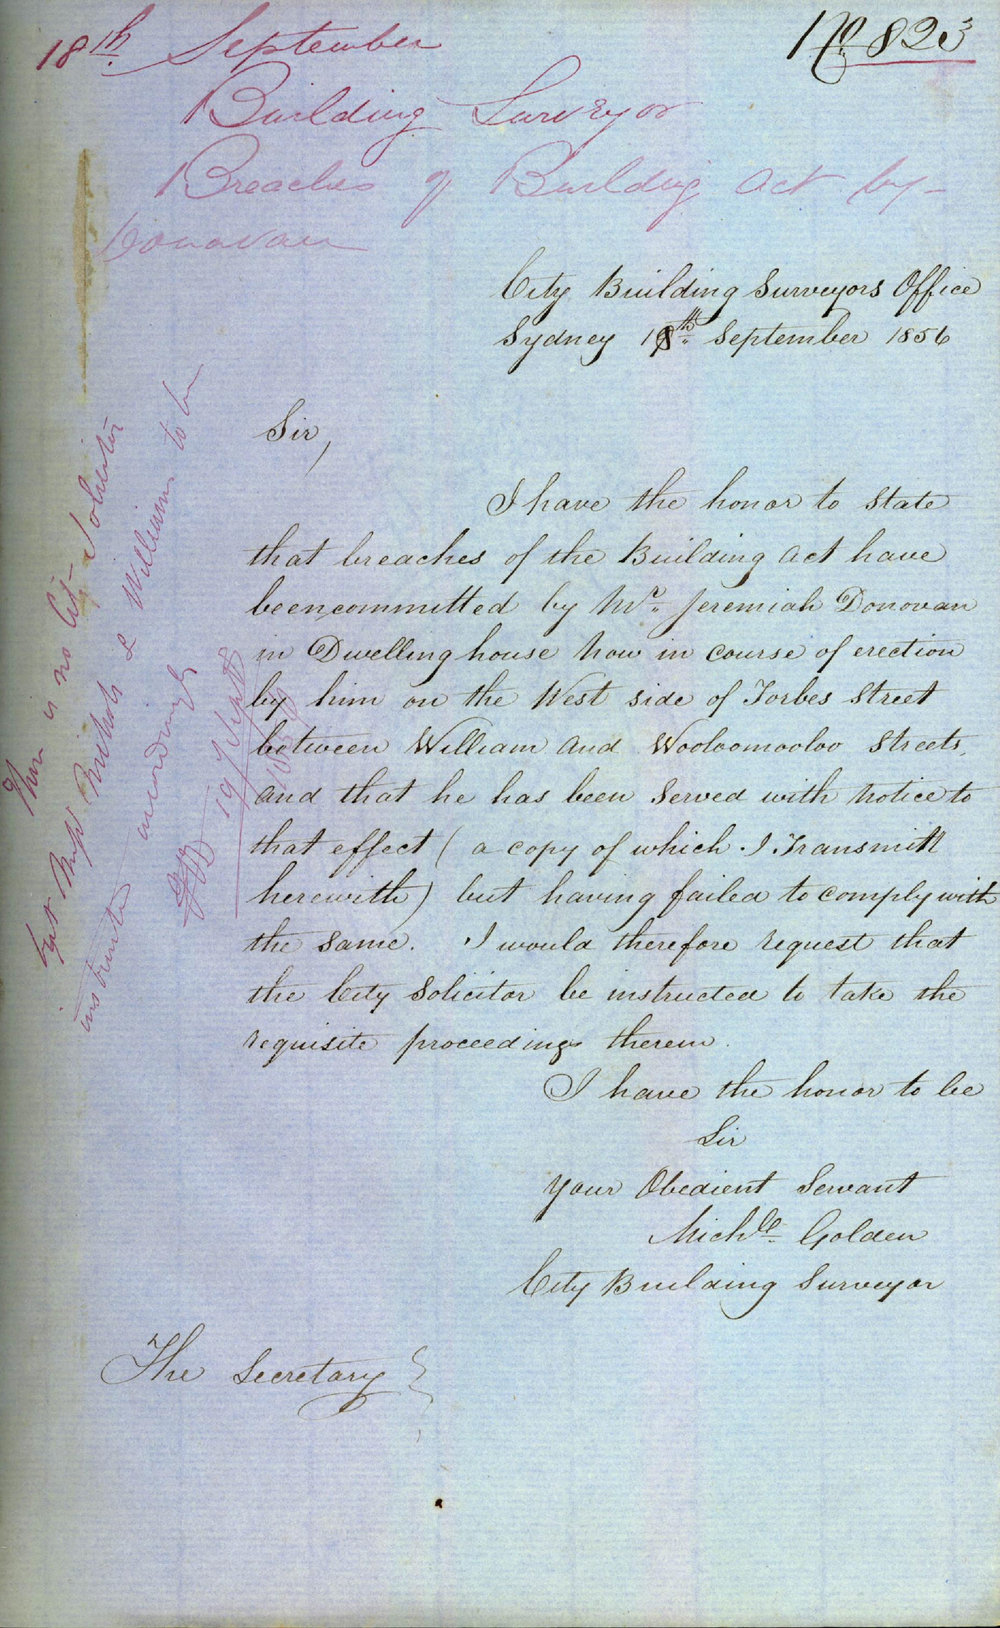 18th. September
No. 823
Building Surveyor
Breaches of Building Act by
Donovan
City Building Surveyors Office
Sydney 18th. September 1856
Sir,
I have the honor to state
that breaches of the Building Act have
been committed by Mr. Jeremiah Donovan
in Dwelling house now in course of erection
by him on the West side of Forbes Street
between William and Wooloomooloo Streets,
and that he has been served with notice to
that effect ( a copy of which I Transmitt
herewith) but having failed to comply with
the same. I would therefore request that
the City Solicitor be instructed to take the
requisite proceedings therein.
I have the honor to be
Sir
Your Obedient Servant
Michle Golden
City Building Surveyor
The Secretary
There is no City Solicitor
& Williams to be
instructed accordingly
19 Sept